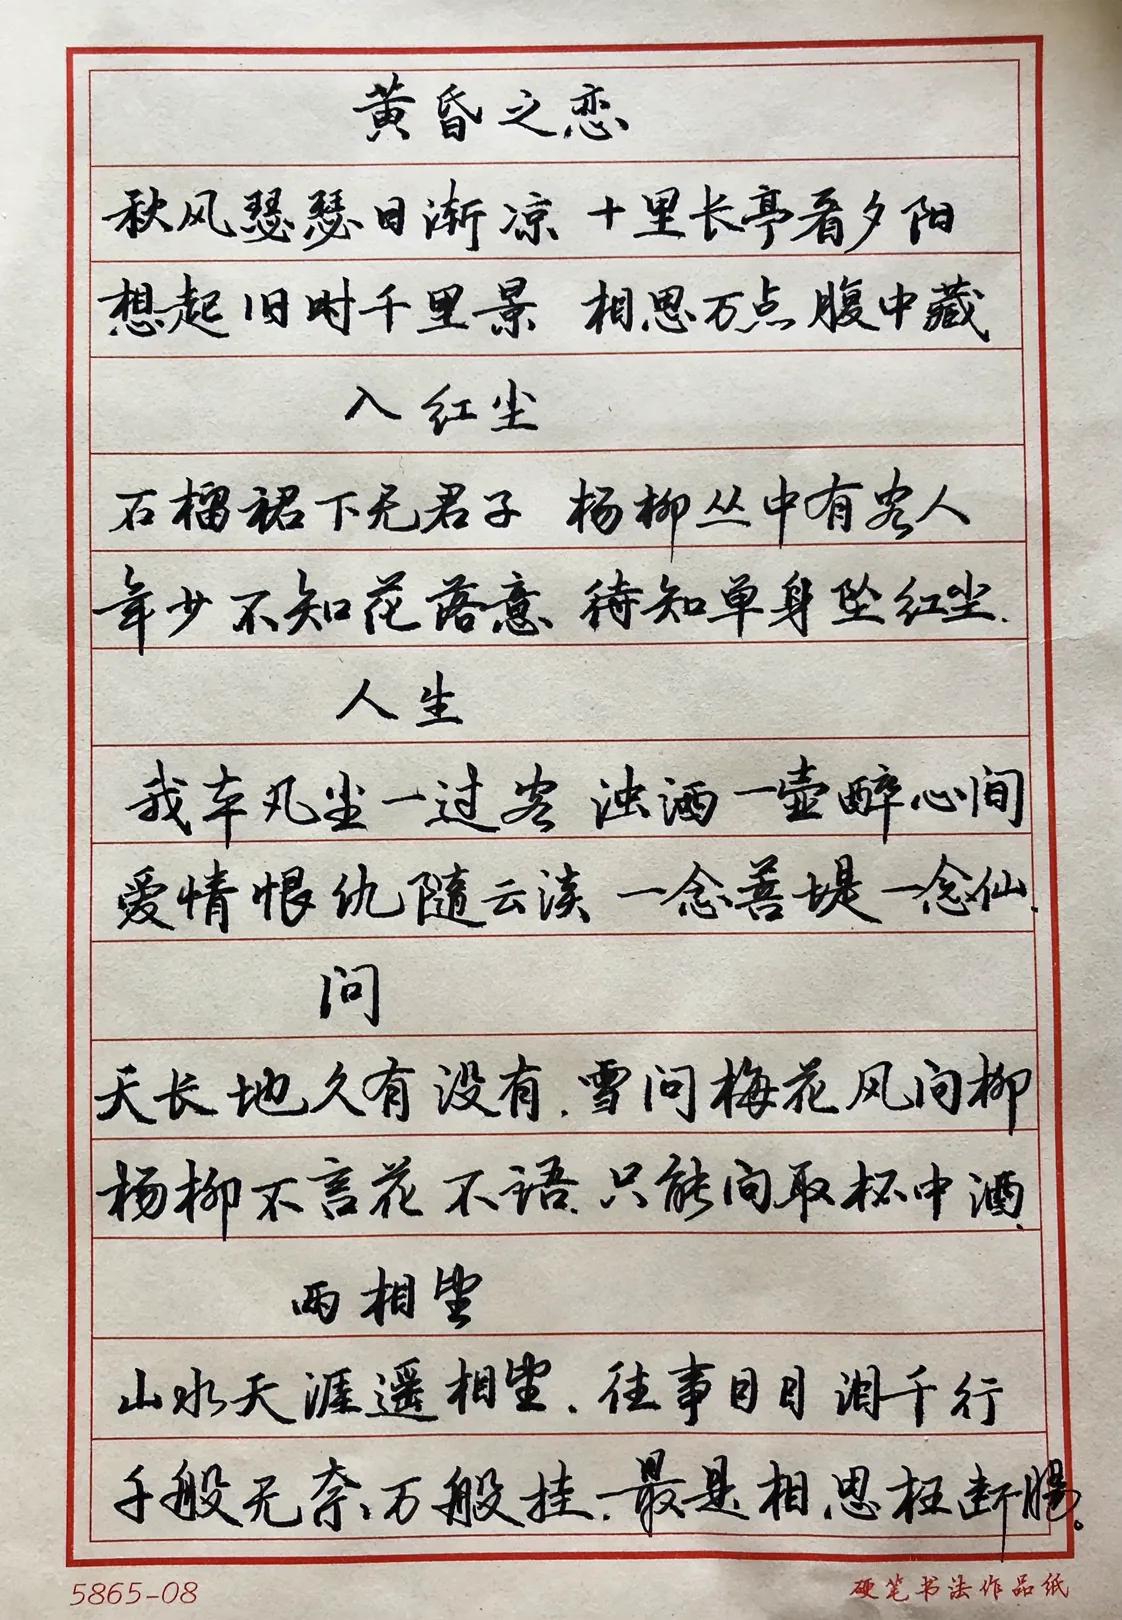 黄昏之恋
秋风瑟瑟日渐凉 十里长亭看夕阳
想起旧时千里景 相思万点腹中藏
入红尘
石榴裙下无君子 杨柳丛中有客人
年少不知花落意 待知单身坠红尘.
人生
我本凡尘一过客 浊酒一壶醉心间
爱情恨仇随云淡 一念菩堤一念仙.
问
天长地久有没有.雪问梅花风问柳
杨柳不言花不语.只能问取杯中酒.
两相望
山水天涯遥相望.往事日日泪千行
千般无奈.万般挂.最是相思枉断肠。
5865-08 硬笔书法作品纸